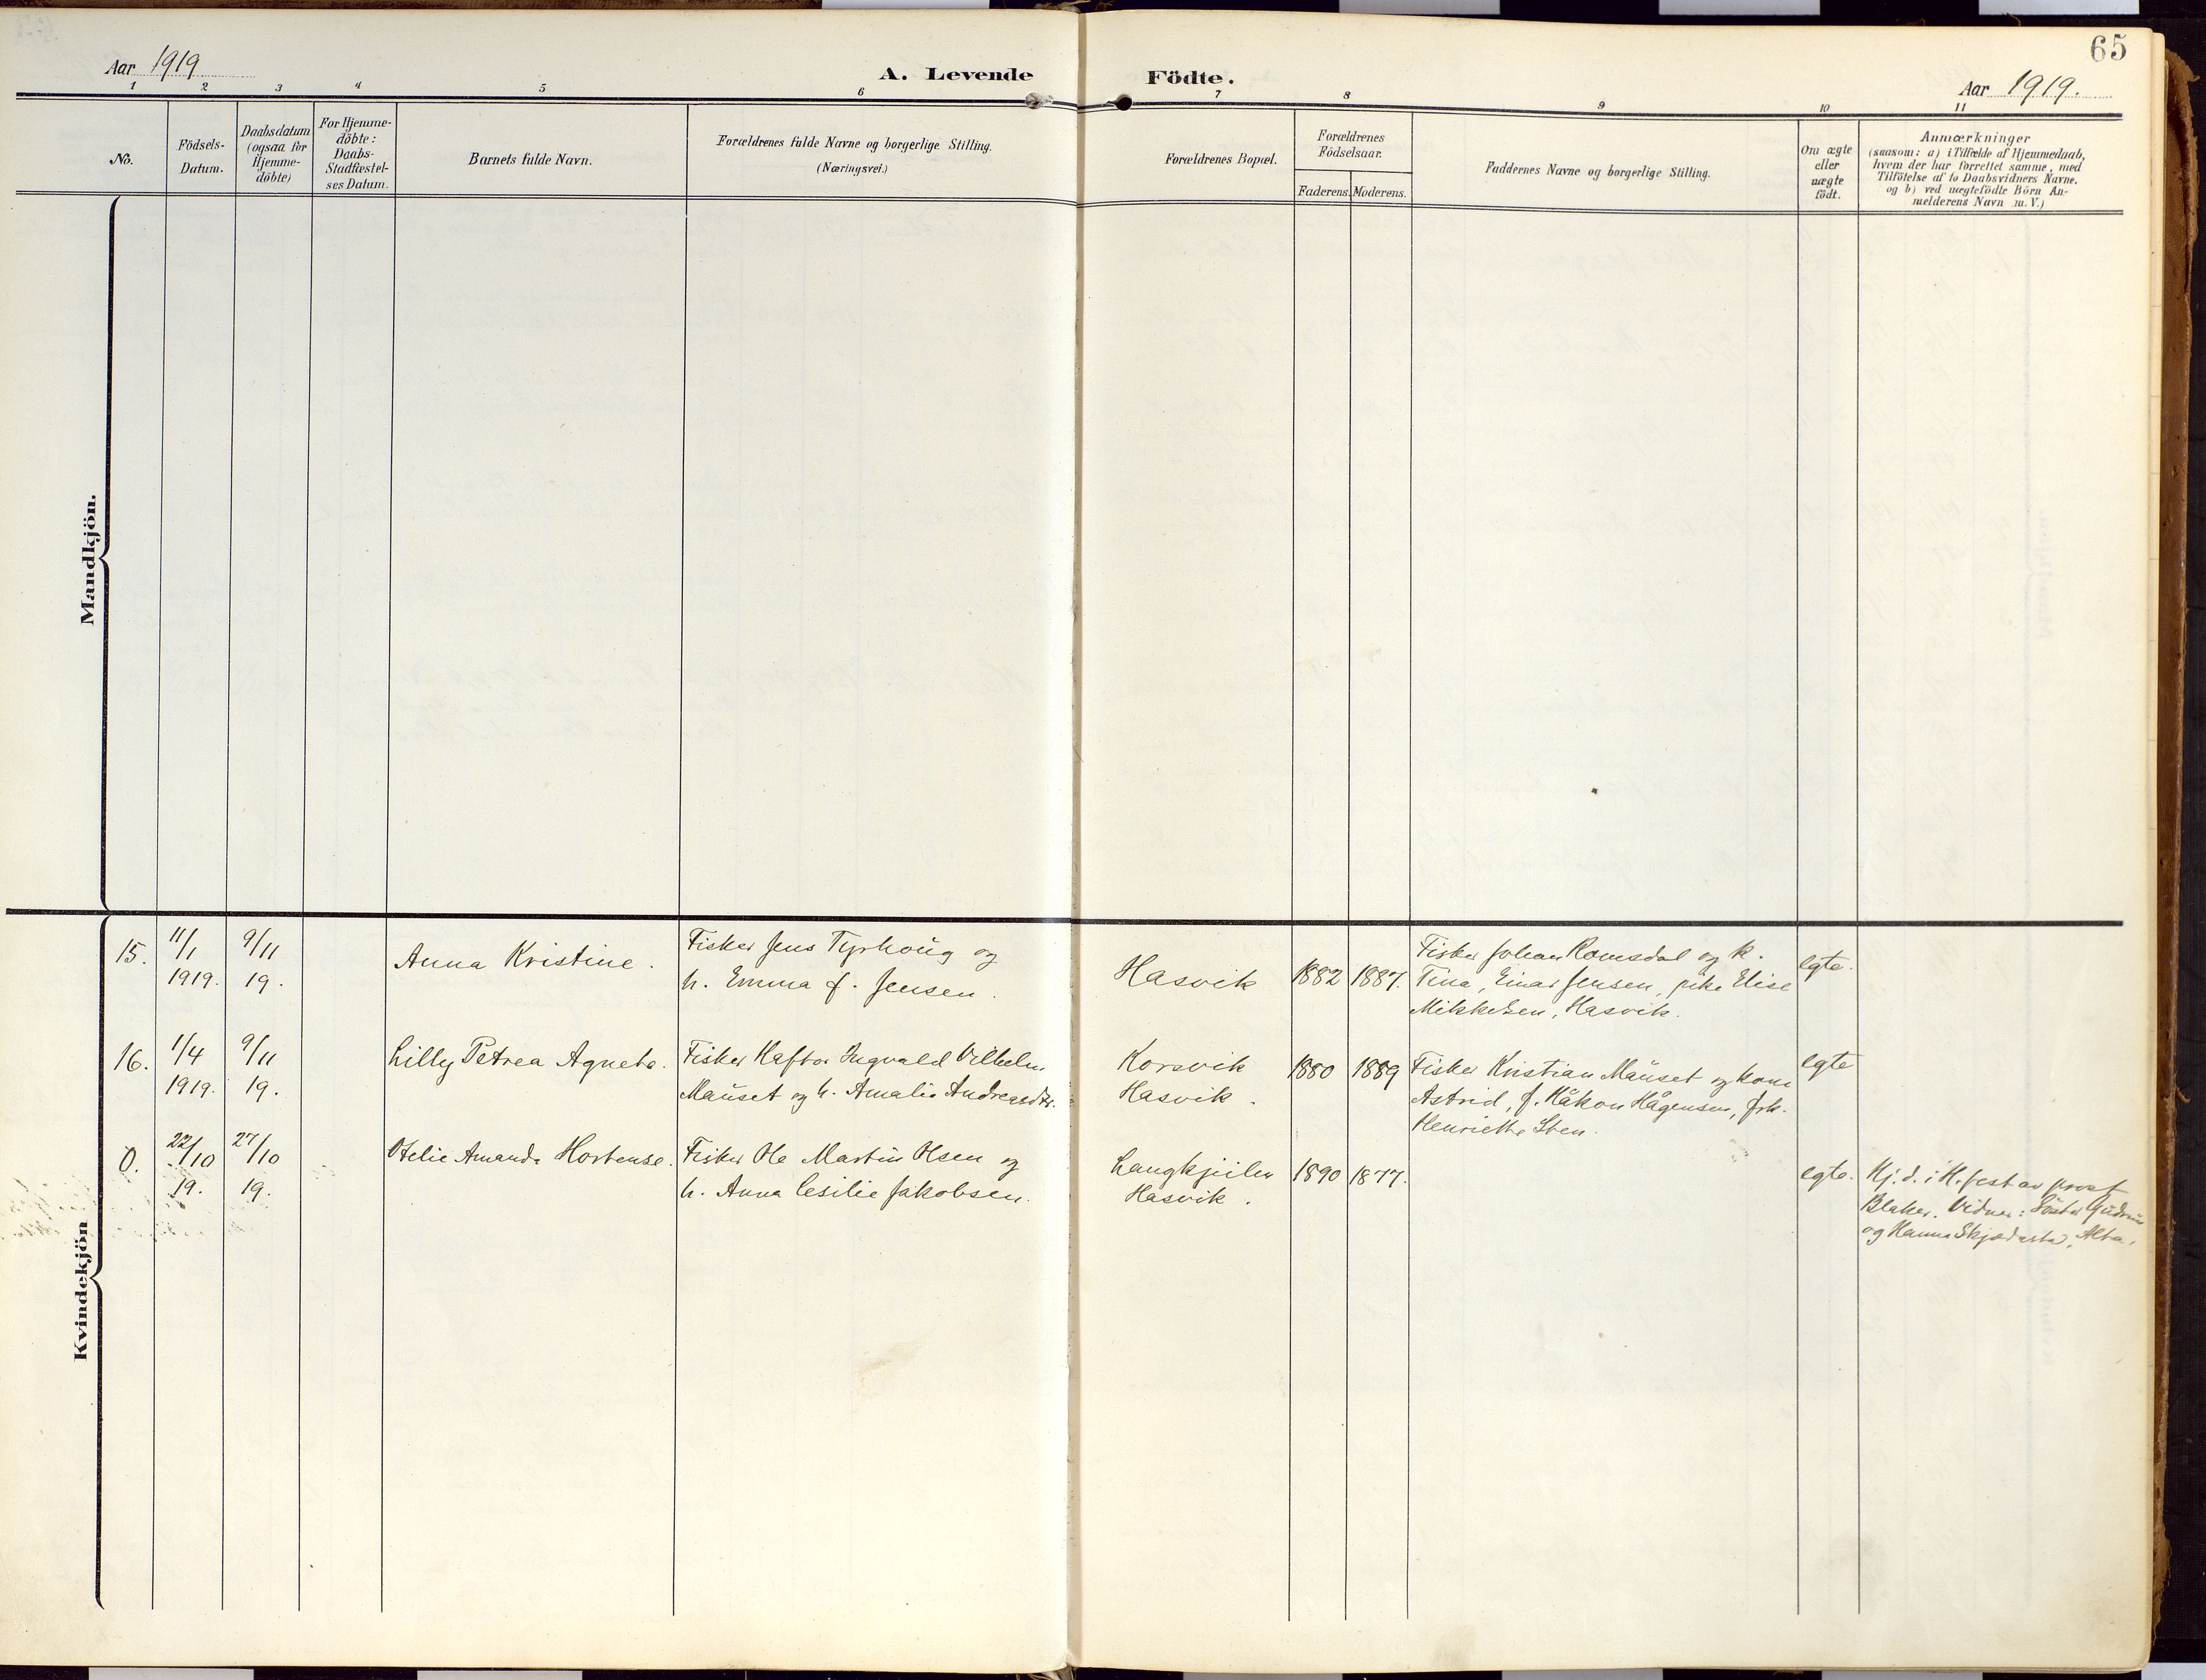 65
Aar 1919
A. Levende Födte.
Aar 1919.
1 2 3 4 5 6 7 8 9 10 11
No.
Födsels-
Datum.
Daabsdatum
(ogsaa for
Hjemme-
döbte)
For Hjemme-
döbte:
Daabs-
Stadfæstel-
ses Datum.
Barnets fulde Navn.
Forældrenes fulde Navne og borgerlige Stilling.
(Næringsvei.)
Forældrenes Bopæl.
Forældrenes
Födselsaar.
Faderens. Moderens.
Faddernes Navne og borgerlige Stilling.
Om ægte
eller
uægte
födt.
Anmærkninger
(saasom: a) i Tilfælde af Hjemmedaab,
hvem der har forrettet samme, med
Tilföielse af to Daabsvidners Navne,
og b) ved uægtefödte Börn An-
melderens Navn m. V.)
Mandkjön.
Kvindekjön
15.
11/1
1919.
9/11
19.
Anna Kristine.
Fisker Jens Tyrhoug og
h. Emma f. Jensen.
Hasvik
1882
1887.
Fisker Johan Romsdal og k.
Tina, Einar Jensen, pike Elise
Mikkelsen, Hasvik.
egte.
16.
1/4
1919.
9/11
19.
Lilly Petrea Agnete.
Fisker Haftor Ingvald Vilhelm
Mauset og h. Amalie Andreasdtr.
Korsvik
Hasvik.
1880
1889
Fisker Kristian Mauset og kone
Astrid, f. Håkon Hågensen, frk.
Henriette Sten.
egte
0.
22/10
19.
27/10
19.
Otelie Amanda Hortense.
Fisker Ole Martin Olsen og
h. Anna Cesilie Jakobsen.
Langkjeilen
Hasvik.
1890
1877.
egte.
Hj. d. i H. fest av prost
Blaker. Vidner: Gudrun
og Hanna Alta.